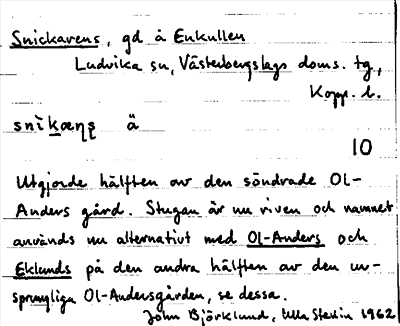 Snickarens, gd å Enkullen
Ludvika sn, Västerbergslags doms. tg,
Kopp. l.
snìkæṇș ä
10
Utgjorde hälften av den söndrade Ol-
Anders gård. Stugan är nu riven och namnet
används nu alternativt med Ol-Anders och
Eklunds på den andra hälften av den ur-
sprungliga Ol-Andersgården, se dessa.
John Björklund, Ulla Stevin 1962